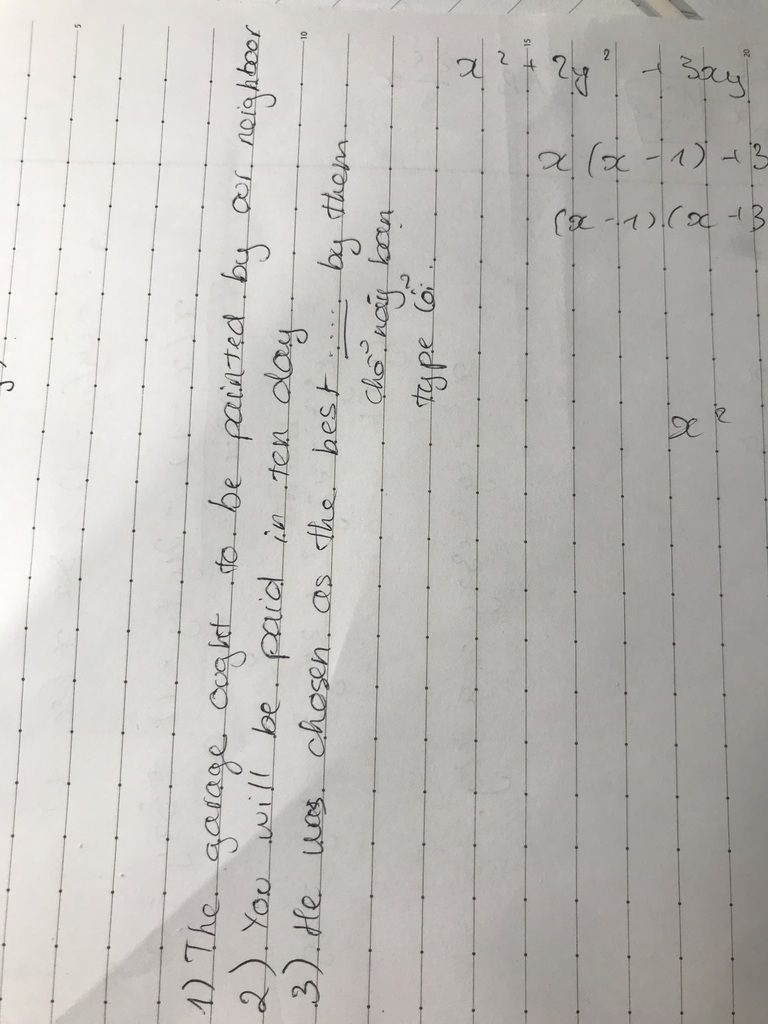 1) The garage ought to be painted by our neighboor
2) You will be paid in ten day
3) He was chosen as the best ..... by them
chỗ này bạn
type lỗi.
x² + 2y² + 3xy
x (x - 1) + 3
(x - 1) (x + 3
x²
5
10
15
20